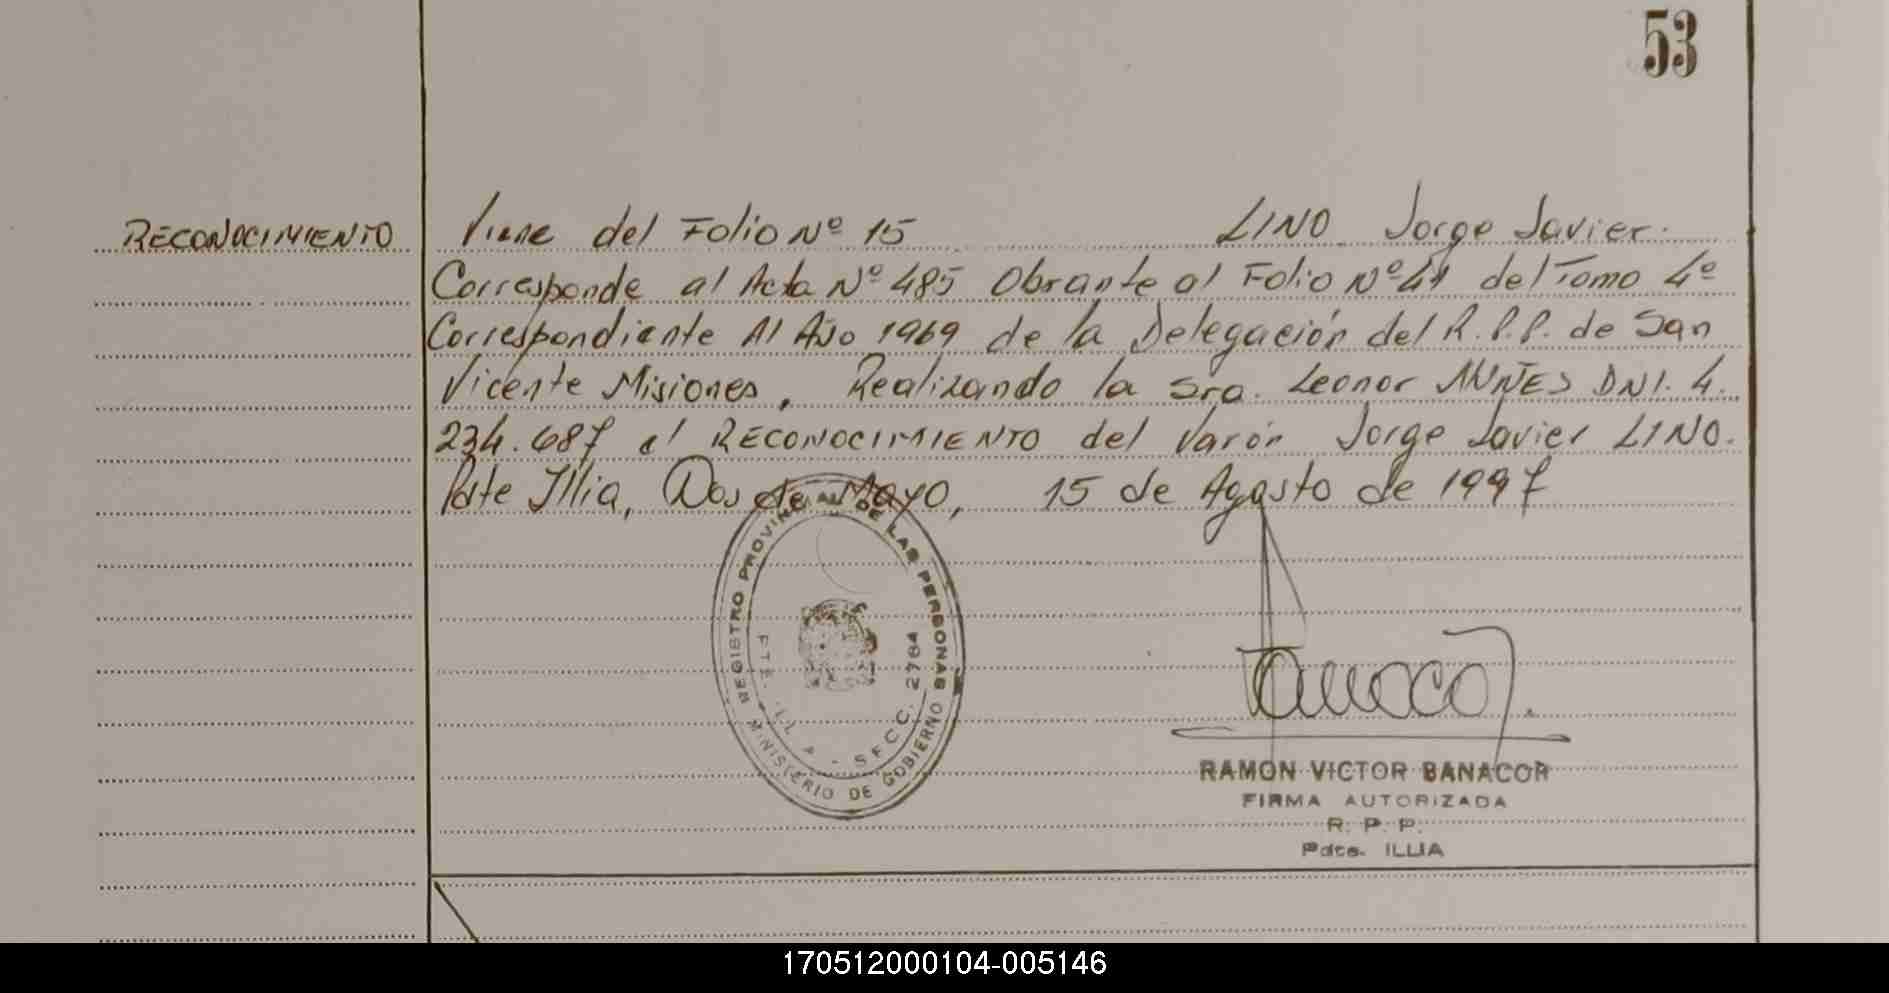 53
RECONOCIMIENTO
Viene del Folio Nº 15 LINO Jorge Javier.
Corresponde al Acta Nº 485 Obrante al Folio Nº 41 del Tomo 4º
Correspondiente Al Año 1969 de la Delegación del R.P.P. de San
Vicente Misiones, Realizando la Sra. Leonor NUÑES DNI. 4.
234.687 el RECONOCIMIENTO del varón Jorge Javier LINO.
Pdte Illia, Dos de Mayo, 15 de Agosto de 1997
REGISTRO PROVINCIAL DE LAS PERSONAS
MINISTERIO DE GOBIERNO
SECC. 2764
RAMON VICTOR BANACOR
FIRMA AUTORIZADA
R. P. P.
Pdte. ILLIA
170512000104-005146